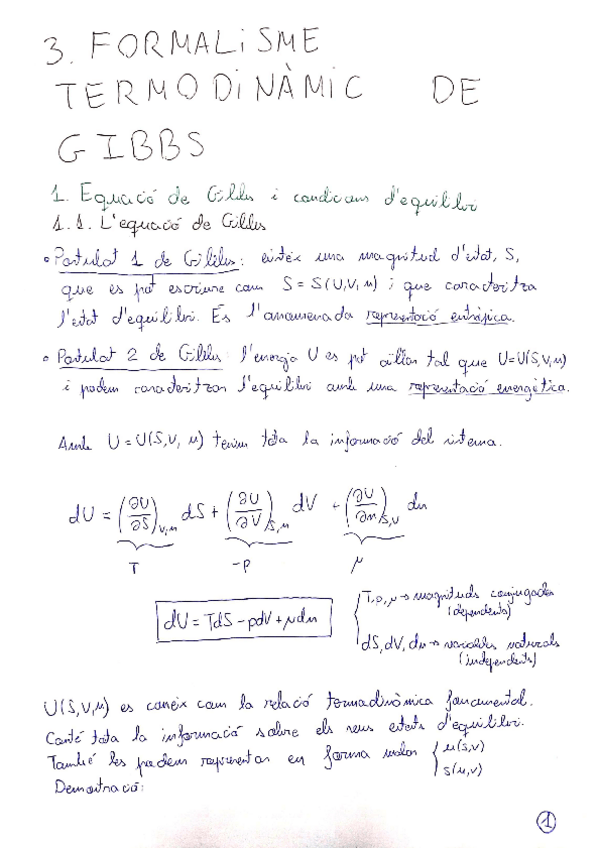 3. FORMALISME
TERMODINÀMIC DE
GIBBS
1. Equació de Gibbs i condicions d'equilibri
1.1. L'equació de Gibbs
• Postulat 1 de Gibbs: existeix una magnitud d'estat, S,
que es pot escriure com S = S(U,V,n) i que caracteritza
l'estat d'equilibri. És l'anomenada representació entròpica.
• Postulat 2 de Gibbs: l'energia U es pot aïllar tal que U=U(S,V,n)
i podem caracteritzar l'equilibri amb una representació energètica.
Amb U = U(S,V, n) tenim tota la informació del sistema.
dU = (∂U/∂S)V,n dS + (∂U/∂V)S,n dV + (∂U/∂n)S,V dn
T -p μ
dU = TdS - pdV + μdn
T,p,μ → magnituds conjugades
(dependents)
dS, dV, dn → variables naturals
(independents)
U(S,V,n) es coneix com la relació termodinàmica fonamental.
Conté tota la informació sobre els seus estats d'equilibri.
També les podem representar en forma molar { u(s,v)
s(u,v)
Demostració:
1